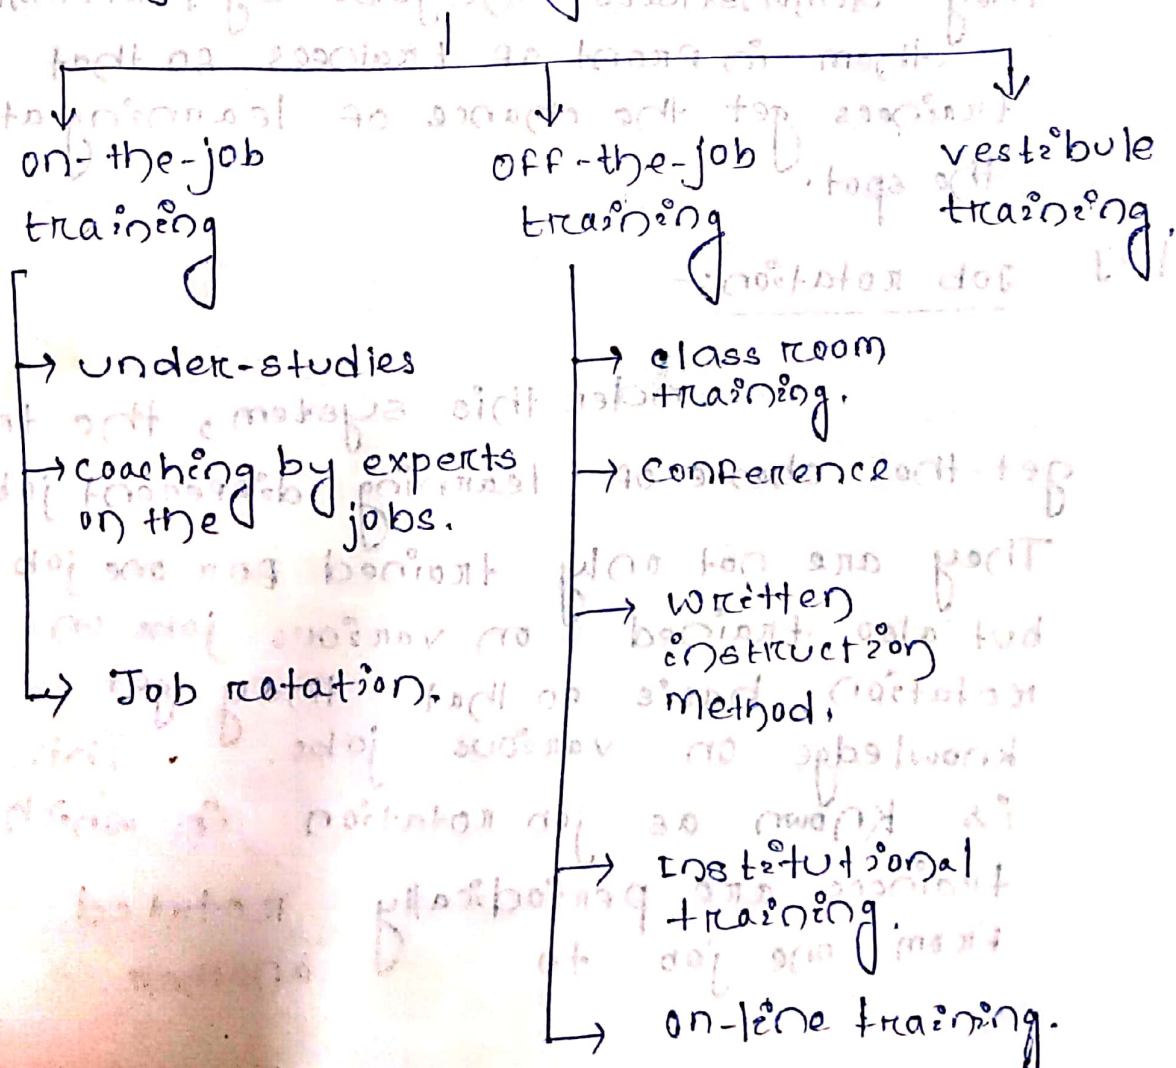 on-the-job
training
under-studies
coaching by experts
on the jobs.
Job rotation.
off-the-job
training
class room
training.
conference
written
instruction
Method.
Institutional
training.
on-line training.
vestibule
training.